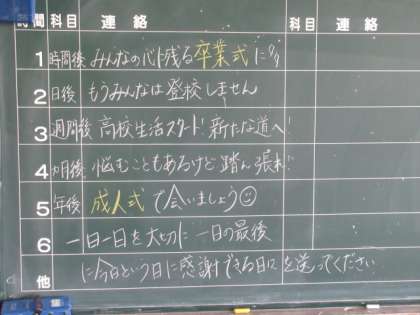 時間 科目 連絡 科目 連絡
1 時間後 みんなの心に残る卒業式に!!
2 日後 もうみんなは登校しません
3 週間後 高校生活スタート!新たな道へ!
4 カ月後 悩むこともあるけど踏ん張れ!
5 年後 成人式で会いましょう☺
6 一日一日を大切に 一日の最後
他 に今日という日に感謝できる日々を送ってください